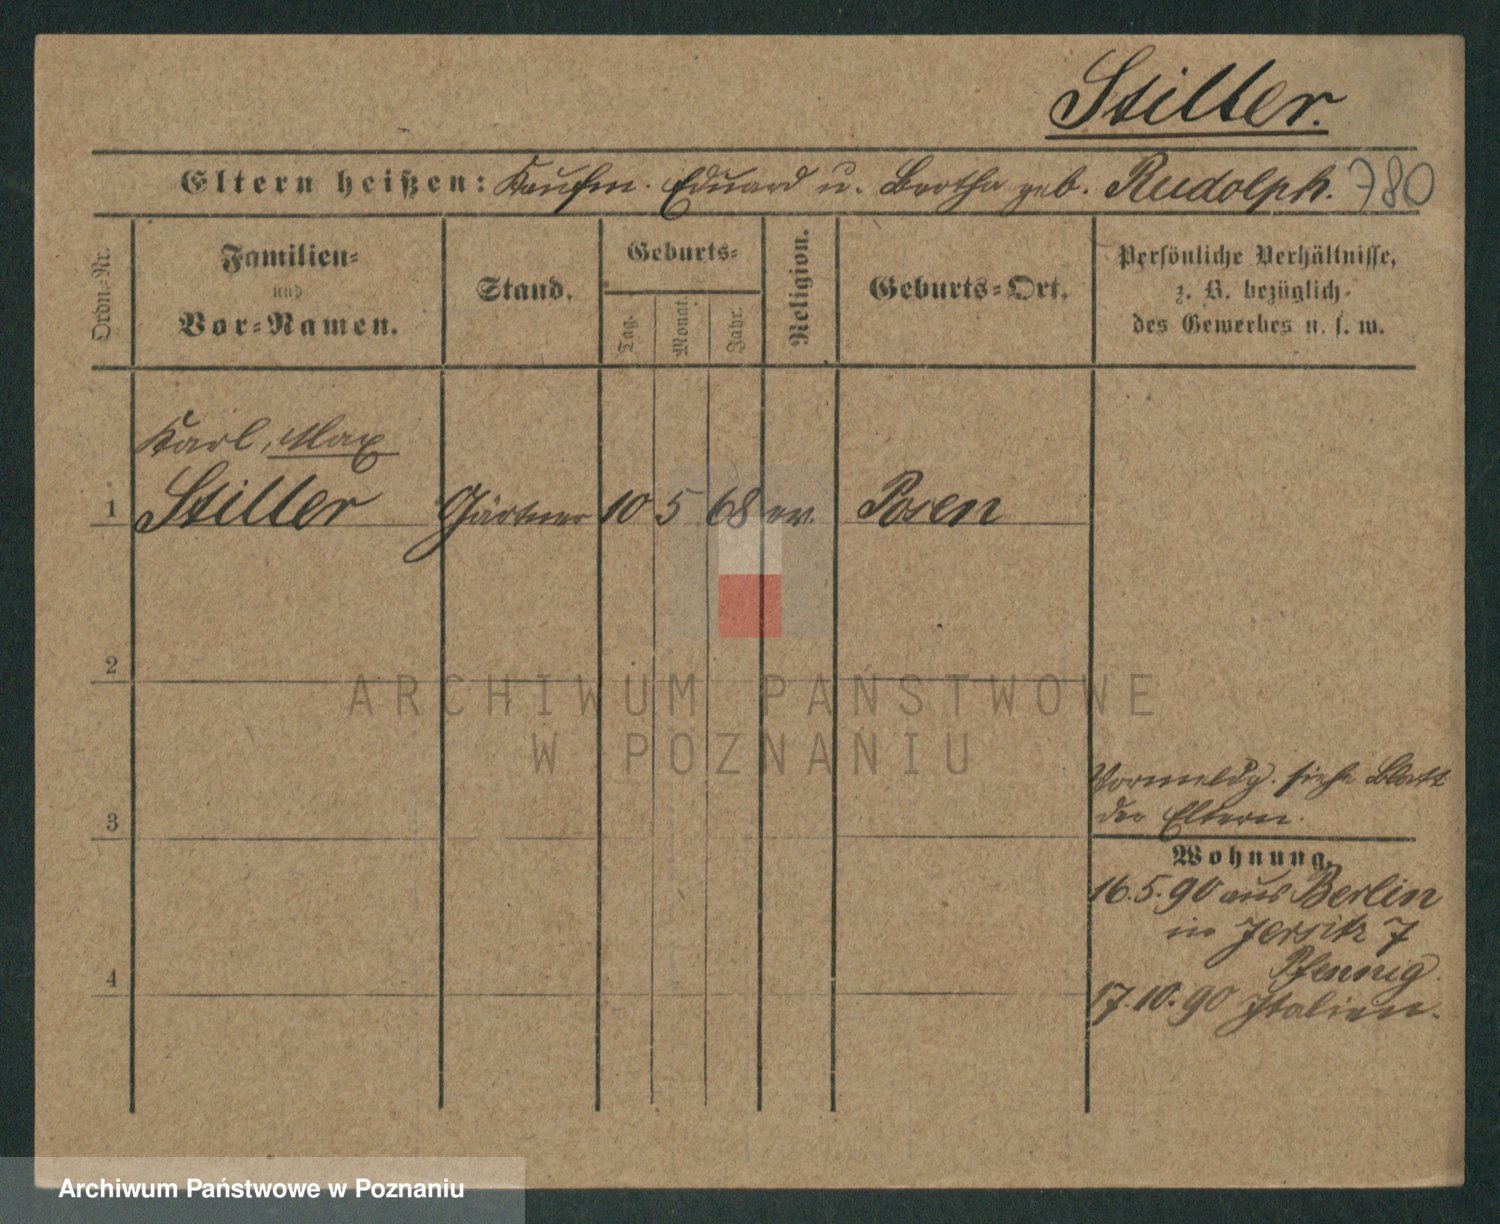 Stiller.
Eltern heißen: Kaufm. Eduard u. Bertha geb. Rudolph. 780
Ordn.-Nr.
Familien-
und
Vor-Namen.
Stand.
Geburts-
Tag.
Monat.
Jahr.
Religion.
Geburts-Ort.
Persönliche Verhältnisse,
z. B. bezüglich
des Gewerbes u. s. w.
Karl, Max
1 Stiller Gärtner 10 5 68 ev. Posen
2
ARCHIWUM PAŃSTWOWE
W POZNANIU
Vormeldg. siehe Blatt
der Eltern.
3
Wohnung.
16.5.90 aus Berlin
in Jersitz 7
Pfennig
4
17.10.90 Italien.
Archiwum Państwowe w Poznaniu